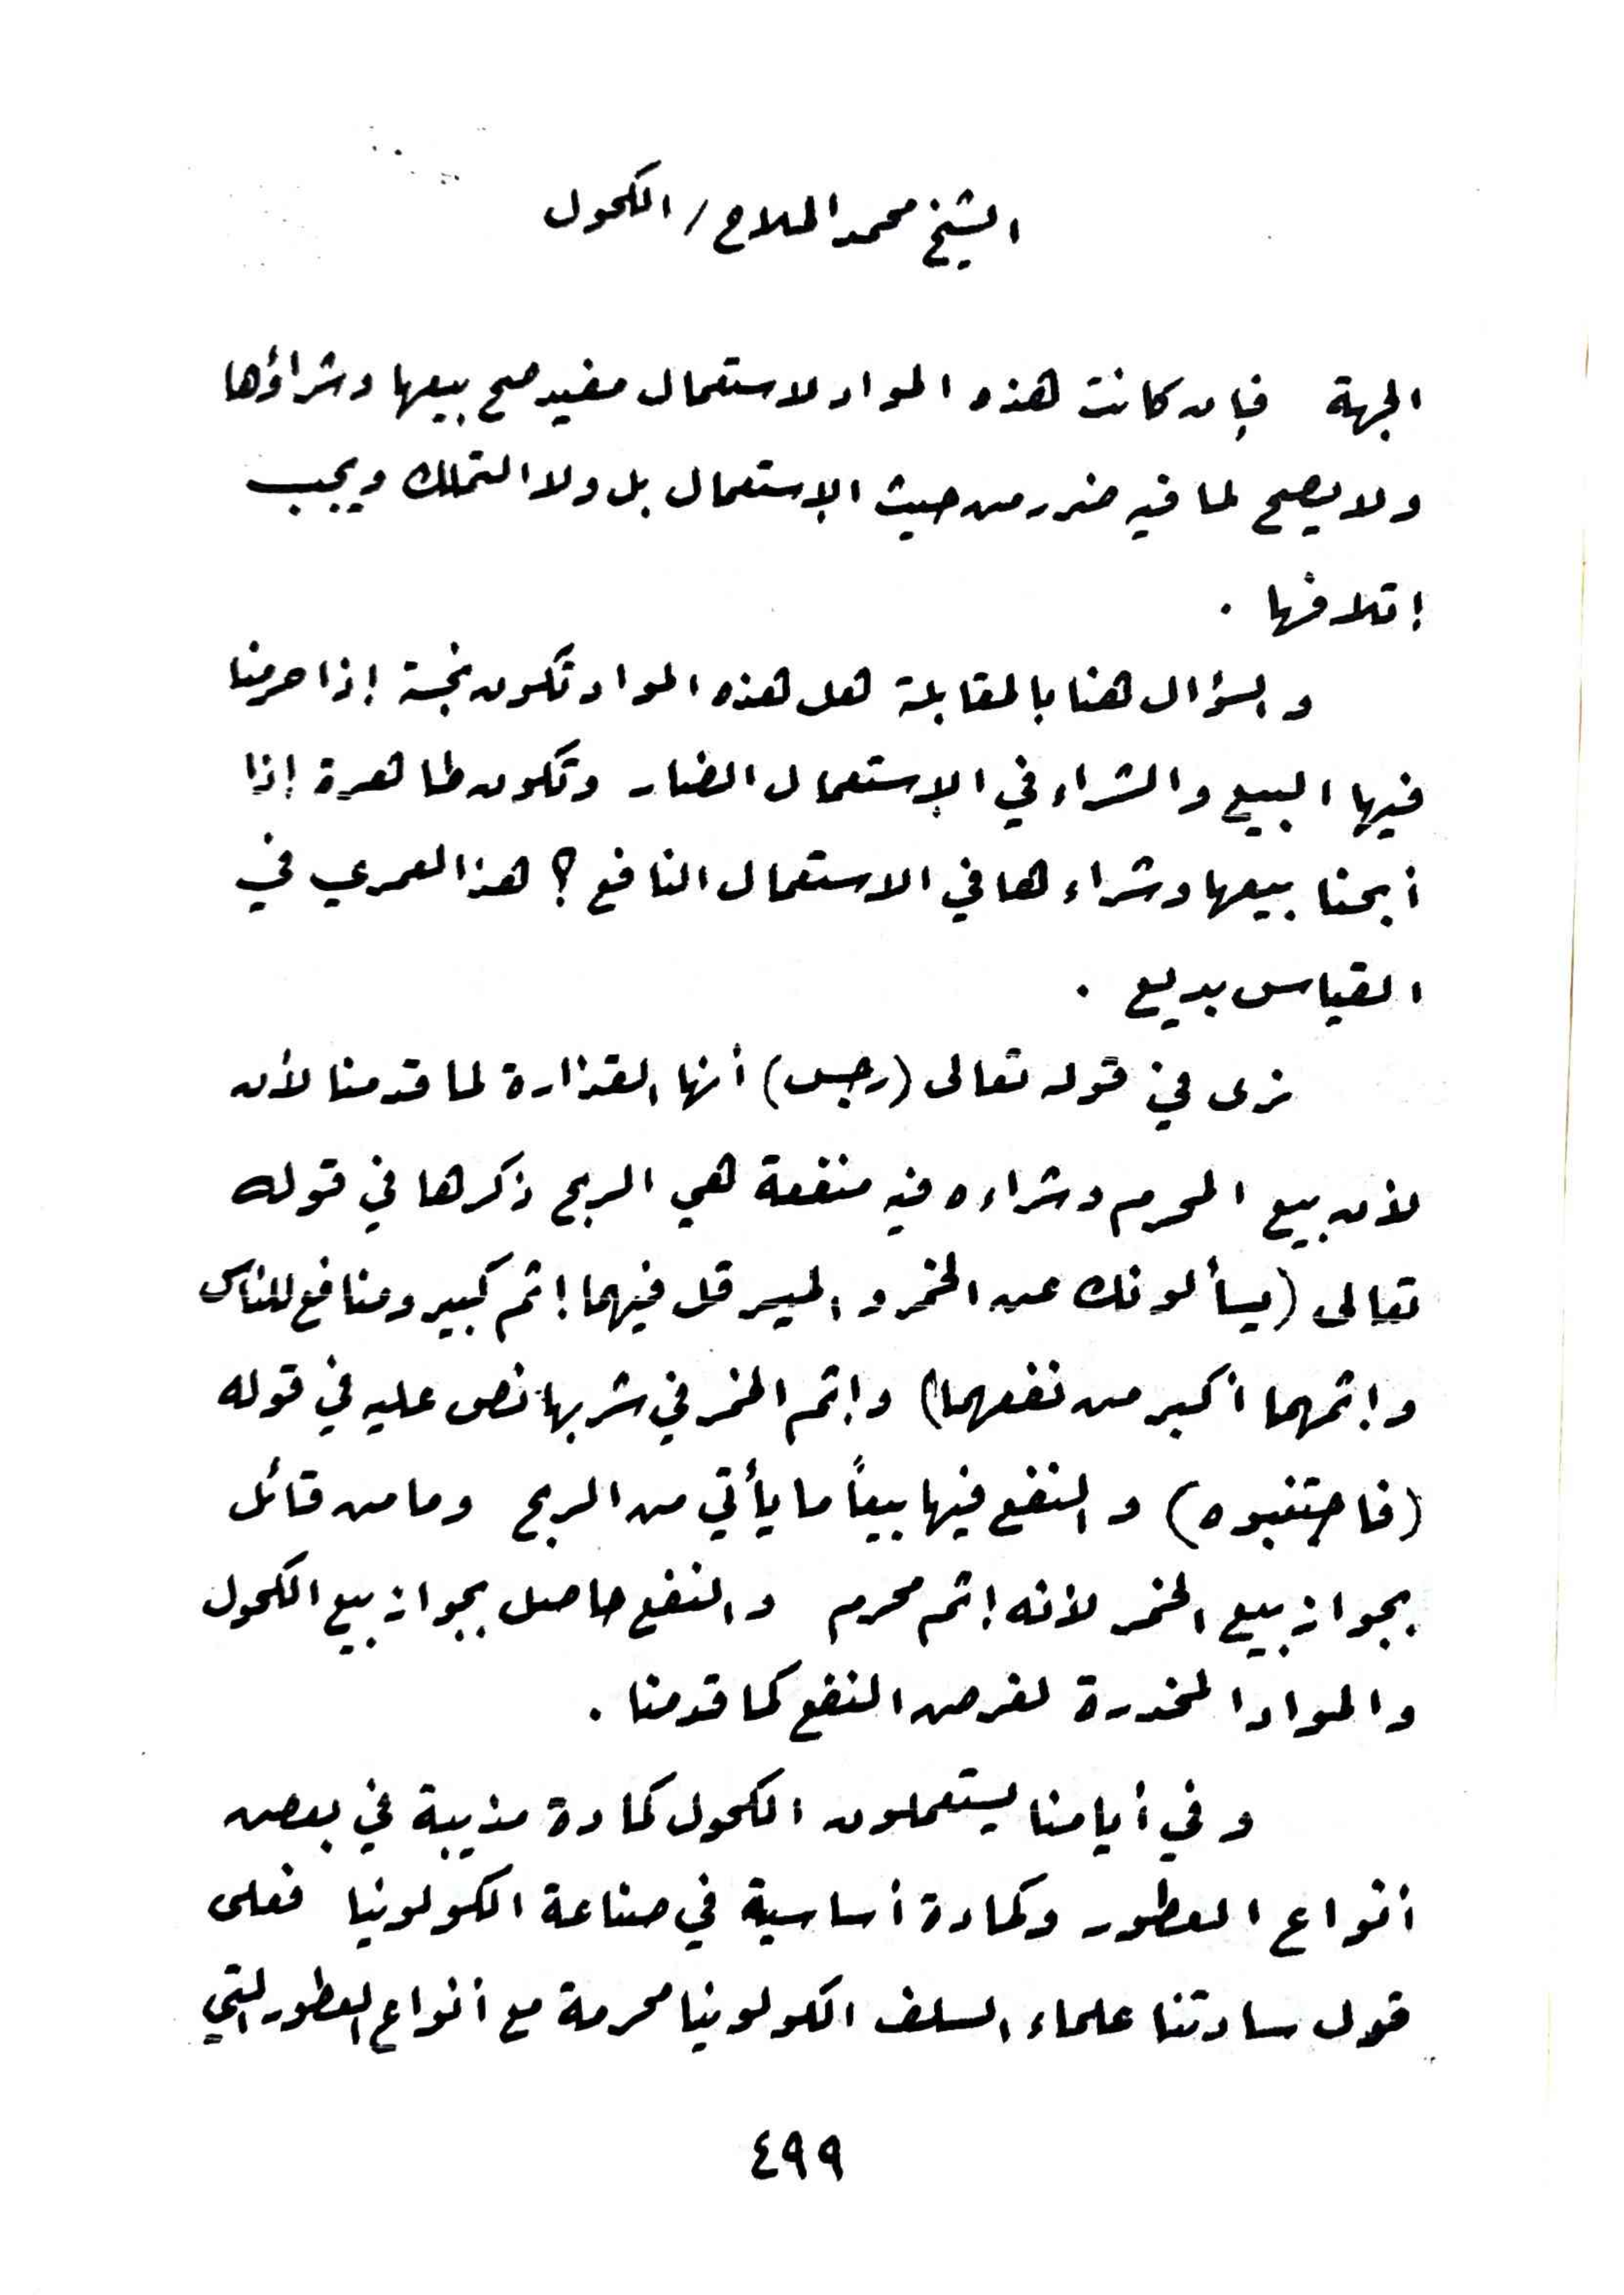 الشيخ محمد الملاح / الكحول
الجهة فإن كانت هذه المواد لاستعمال مفيد صح بيعها وشراؤها
ولا يصح لما فيه ضرر من حيث الإستعمال بل ولا التملك ويجب
إتلافها .
والسؤال هنا بالمقابلة هل هذه المواد تكون نجسة إذا حرمنا
فيها البيع والشراء في الإستعمال الضار وتكون طاهرة إذا
أبحنا بيعها وشراءها في الاستعمال النافع ؟ هذا لعمري في
القياس بديع .
نرى في قوله تعالى (رجس) أنها القذارة لما قدمنا لأن
لأن بيع المحرم وشراءه فيه منفعة هي الربح ذكرها في قوله
تعالى (يسألونك عن الخمر والميسر قل فيهما إثم كبير ومنافع للناس
وإثمهما أكبر من نفعهما) وإثم الخمر في شربها نص عليه في قوله
(فاجتنبوه) والنفع فيها بيعاً ما يأتي من الربح وما من قائل
بجواز بيع الخمر لأنه إثم محرم والنفع حاصل بجواز بيع الكحول
والمواد المخدرة لغرض النفع كما قدمنا .
وفي أيامنا يستعملون الكحول كمادة مذيبة في بعض
أنواع العطور وكمادة أساسية في صناعة الكولونيا فعلى
قول سادتنا علماء السلف الكولونيا محرمة مع أنواع العطور التي
٤٩٩